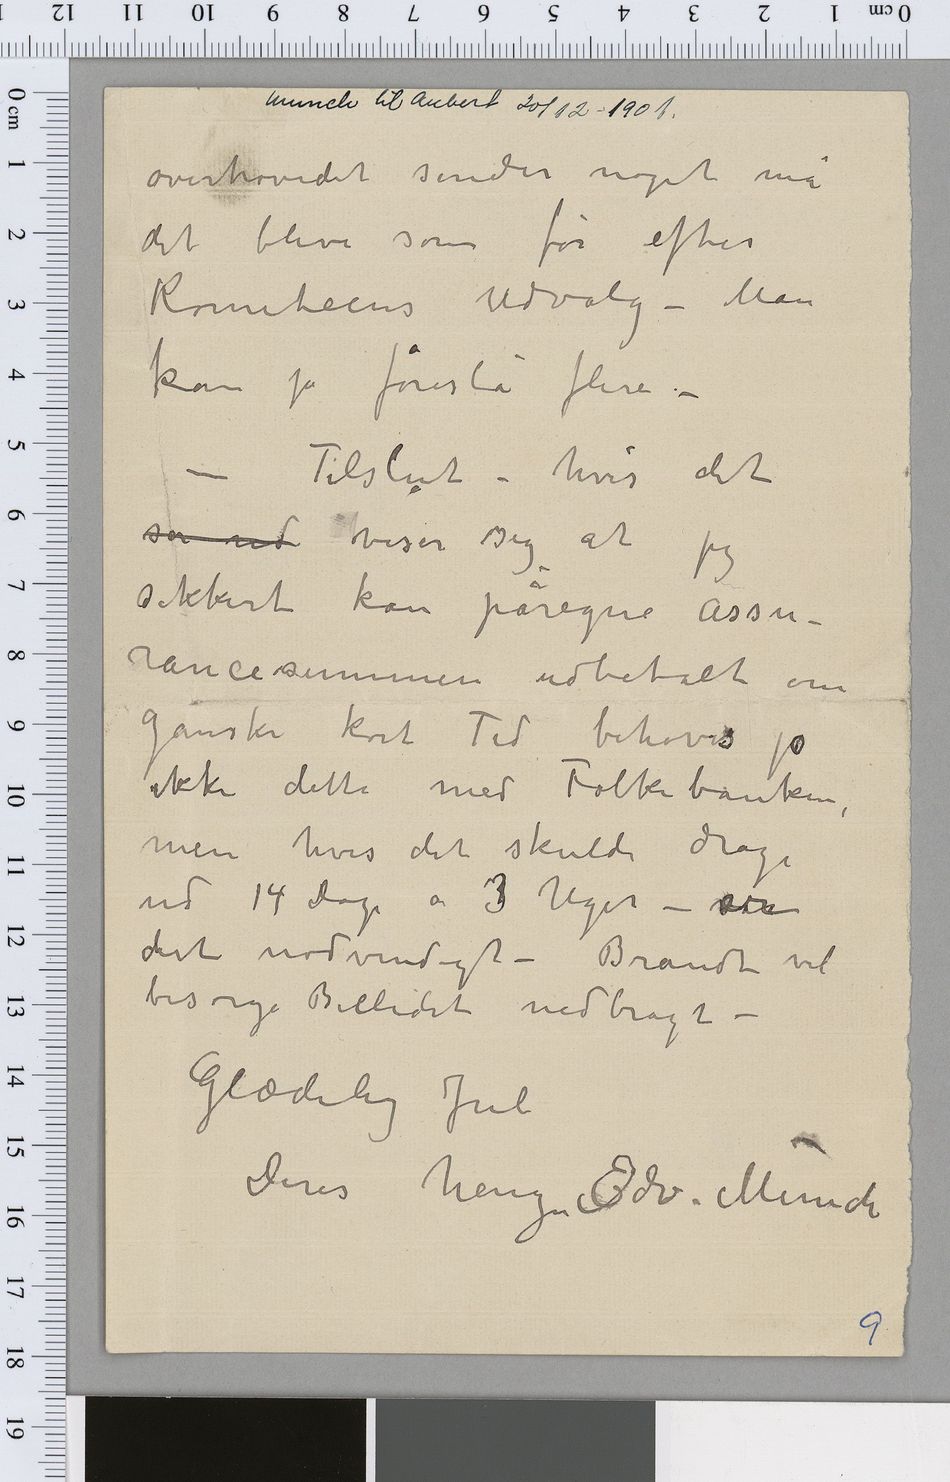 Munch til Aubert 20/12-1901.
overhovedet sender noget må
det blive som før efter
Komiteens Udvalg – Man
kan jo föreslå flere –
— Tilslut – hvis det
ser ud viser sig at jeg
sikkert kan påregne assu-
rancesummen udbetalt om
ganske kort Tid behøves jo
ikke dette med Folkebanken,
men hvis det skulde drage
ud 14 Dage a 3 Uger –
det nødvendigt – Brandt vil
besørge Billedet nedbragt –
Glædelig Jul
Deres heng. Edv. Munch
9